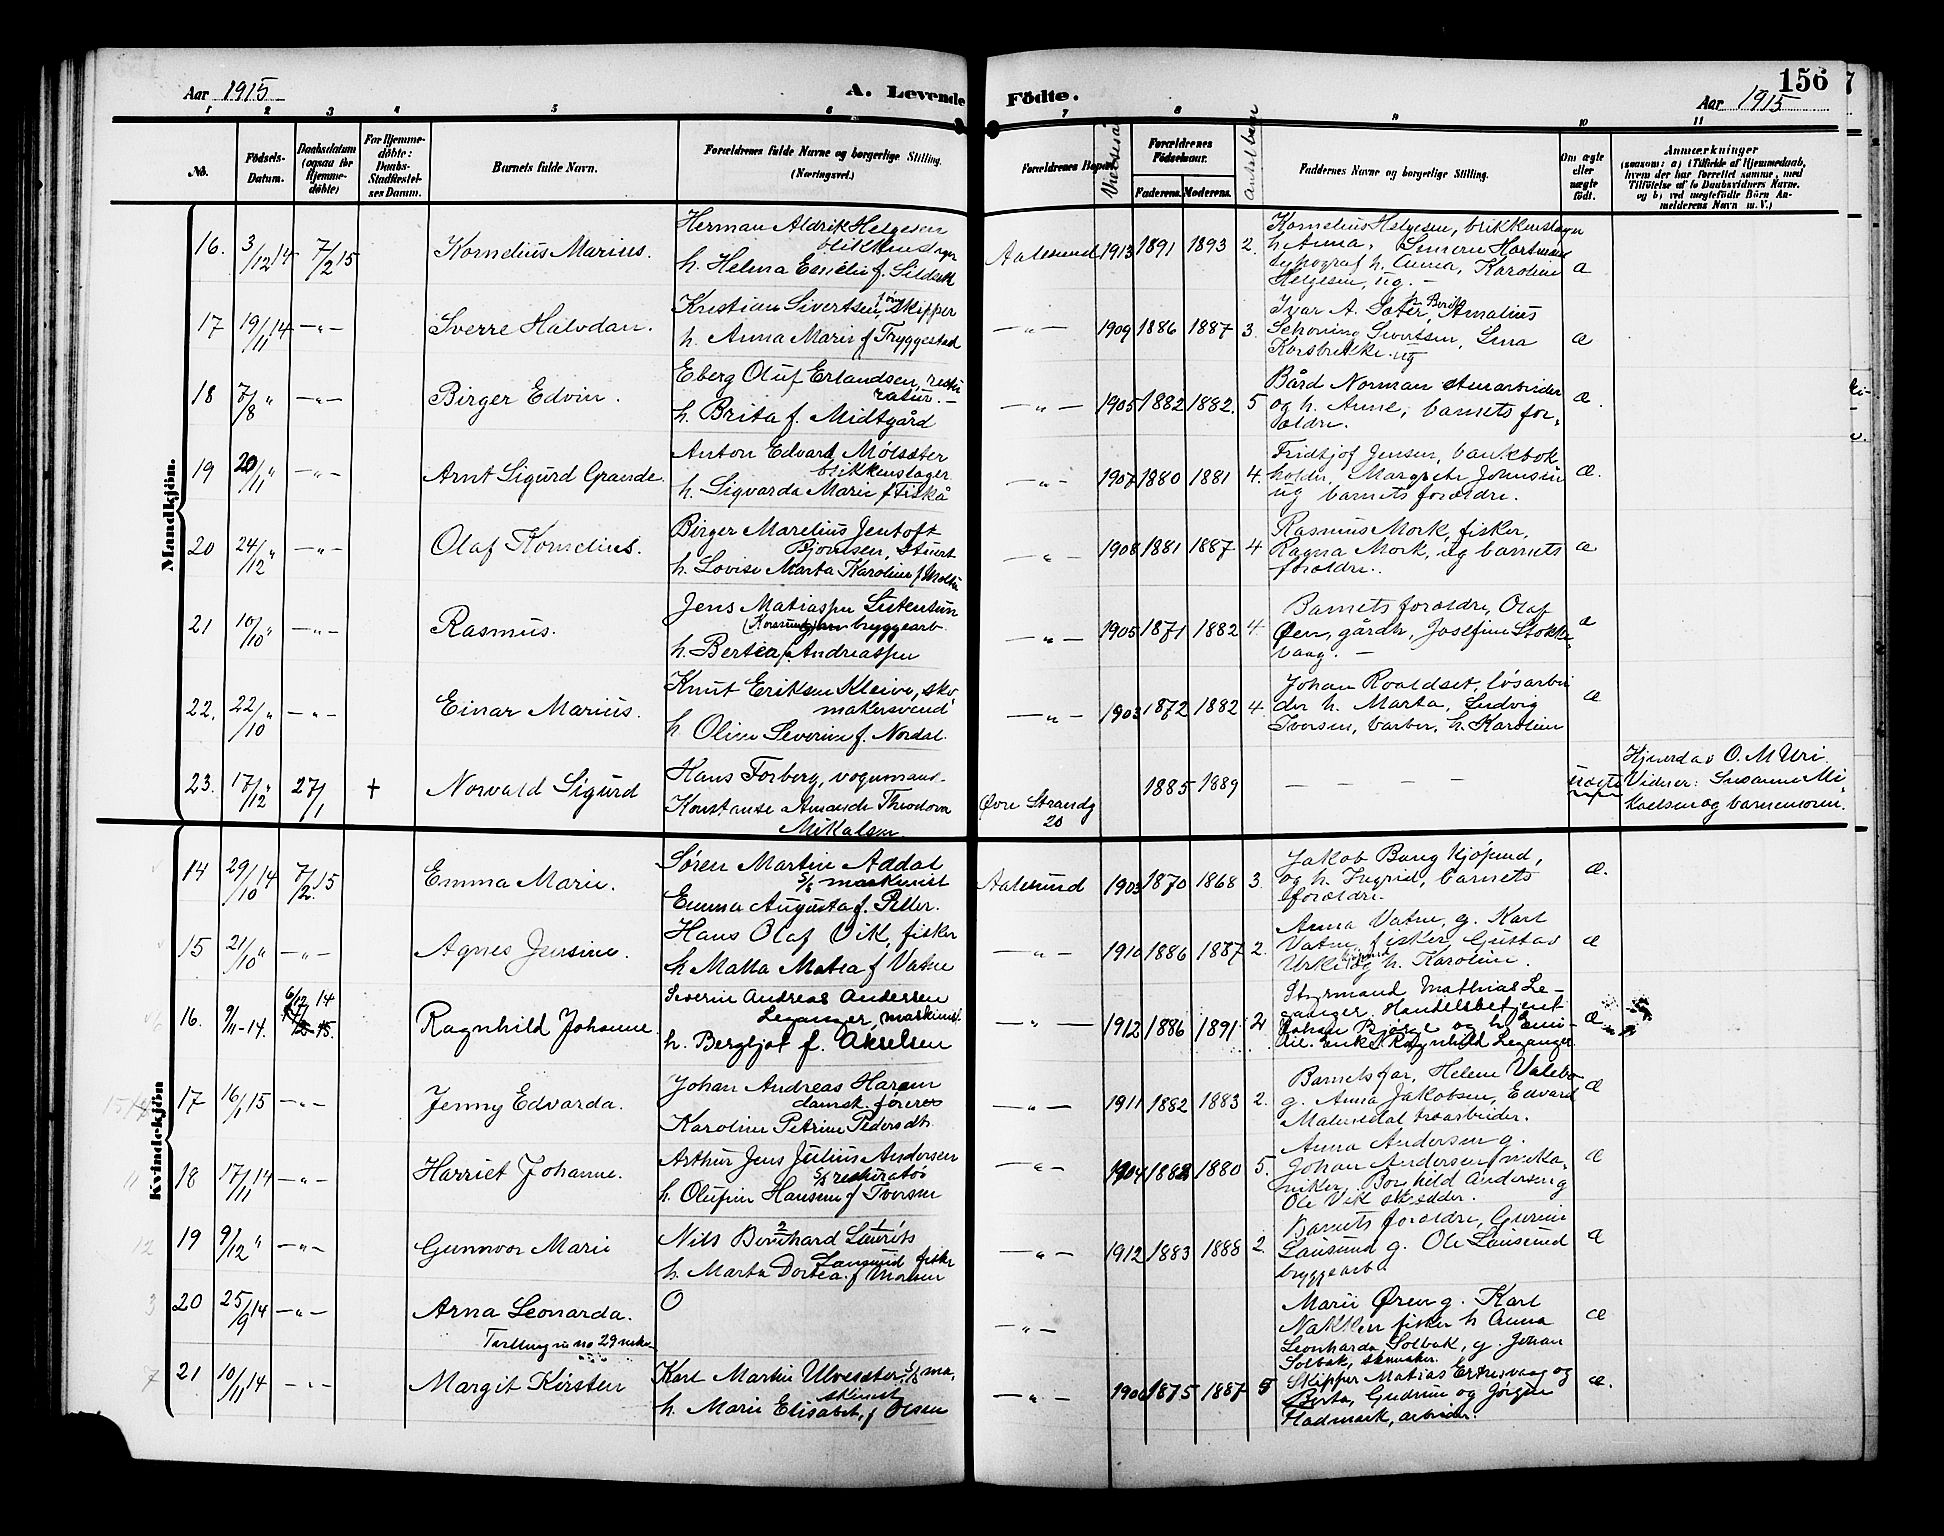 Aar 1915
A. Levende Födte.
156
Aar 1915
1 2 3 4 5 6 7 8 9 10 11
No.
Födsels-Datum.
Daabsdatum (ogsaa for Hjemme-döbte)
For Hjemme-döbte: Daabs-Stadfæstel-ses Datum.
Barnets fulde Navn.
Forældrenes fulde Navne og borgerlige Stilling. (Næringsvei.)
Forældrenes Bopæl.
Vielsesaar
Forældrenes Födselsaar.
Faderens. Moderens.
Antal børn
Faddernes Navne og borgerlige Stilling.
Om ægte eller uægte födt.
Anmærkninger
(saasom: a) i Tilfælde af Hjemmedaab, hvem der har forrettet samme, med Tilföielse af to Daabsvidners Navne. og b) ved uægtefödte Börn An-melderens Navn m. V.)
Mandkjön.
16. 3/12 14 7/2 15 Kornelius Marius.
Herman Aldrik Helgesen
blikkenslager
h. Helma Emelie f. Sildvik
Aalesund 1913 1891 1893 2.
Kornelius Helgesen, blikkenslager
h. Anna, Simon Hartman
typograf h. Anna, Karoline
Helgesen, ug. —
æ
17 19/11 14 —„— Sverre Halvdan.
Kristian Sivertsen, skipper
h. Anna Marie f Tryggestad
—„— 1909 1886 1887 3.
Ivar A. Sæter, h. Berit, Amalius
Schøning Sivertsen, Lina
Korsbrekke. ug
æ
18 7/8 „ —„— Birger Edvin.
Eberg Oluf Erlandsen, restu
ratør. —
h. Brita f. Midtgård
—„— 1905 1882 1882. 5
Bård Norman stenarbeider
og h. Anne, barnets for-
ældre.
æ.
19 20/11 „ —„— Arnt Sigurd Grande.
Anton Edvard Molsæter
blikkenslager
h. Sigvarda Marie f Fiskå
—„— 1907 1880 1881 4.
Fridtjof Jensen, bankbok
holder, Margrete Johnsen
ug barnets forældre.
æ.
20 24/12 „ —„— Olaf Kornelius.
Birger Marelius Jentoft
Bjørnsen, Stuert
h. Lovise Marta Karoline f Moltu
—„— 1908 1881 1887 4
Rasmus Mork, fisker,
Ragna Mork, ug barnets
forældre.
æ
21 10/10 „ —„— Rasmus.
Jens Matiassen
bryggearb.
h. Bertea f. Andreassen
—„— 1905 1871 1882 4.
Barnets forældre, Olaf
Øen, gårdbr, Josefine Stokke
vaag. —
æ
22. 22/10 „ —„— Einar Marius.
Knut Eriksen Kleive, sko
makersvend
h Oline Severine f. Nordal.
—„— 1903 1872 1882 4.
Johan Roaldset, løsarbei
der h. Marta, Ludvig
Iversen, barber, h. Karoline
æ
23. 17/12 „ 27/1 + Norvald Sigurd
Hans Forberg, vognmand.
Konstanse Amanda Theodora
Mikalsen
Øvre Strandg
20
1885 1889 — — —
uægte
Hjemd av O. M Uri.
Vidner: Susanne Mi-
kaelsen og barnemoren.
Kvindekjön
14 29/10 14 7/2 15 Emma Marie.
Søren Martin Addal
s/s maskinist
Emma Augusta f. Peller.
Aalesund 1903 1870 1868 3.
Jakob Bang kjøpmd,
og h. Ingrid, barnets
forældre.
æ.
15 21/10 „ —„— Agnes Jensine.
Hans Olaf Vik, fisker
h Malla Matea f Vatne
—„— 1910 1886 1887 2.
Anna Vatne, g. Karl
Vatne, fisker, Gustav
Urke og h. Karoline.
æ
16. 9/11-14. 6/12 14 Ragnhild Johanne.
Severin Andreas Andersen
Leganger, maskinist
h. Bergljot f. Akselsen
—„— 1912 1886 1891 2
Styrmand Mathias Le-
ganger, Handelsbetjent
Johan Bjørge og h. Emi-
lie. Enke Ragnhild Leganger
æ
17 16/1 15 —„— Jenny Edvarda.
Johan Andreas Haram
damsk. fører
Karoline Petrine Pedersdt.
—„— 1911 1882 1883 2.
Barnets far, Helene Valebø
g. Anna Jakobsen, Edvard
Malmedal træarbeider.
æ
11 18 17/11 14 —„— Harriet Johanne.
Arthur Jens Julius Andersen
s/s resturatør
h. Olufine Hansen f Iversen
—„— 1904 1882 1880 5.
Anna Andersen g.
Johan Andersen meka-
niker, Borghild Andersen g
Ole Vik skredder.
æ
12 19 9/12 „ —„— Gunnvor Marie
Nils Bernhard Laurits
Lausund fisker
h. Marta Dortea f Monsen
—„— 1912 1883 1888 2.
Barnets forældre, Gurine
Lausund g. Ole Lausund
bryggearb.
æ
3 20 25/9 14 —„— Arna Leonarda.
O
—„—
Marie Øren g. Karl
Nakken fisker h Anna
Leonharda Solbak, g. Johan
Solbak, skomaker.
æ
Tvilling no 29
7 21 10/11 14 —„— Margit Kirsten
Karl Martin Ulvesæter, s/s ma-
skinist
h. Marie Elisabet, f Olsen
—„— 1906 1875 1887 5
Skipper Matias Ertesvaag og
Berta, Gudrun og Jørgen
Hadmark, arbeider.
æ.